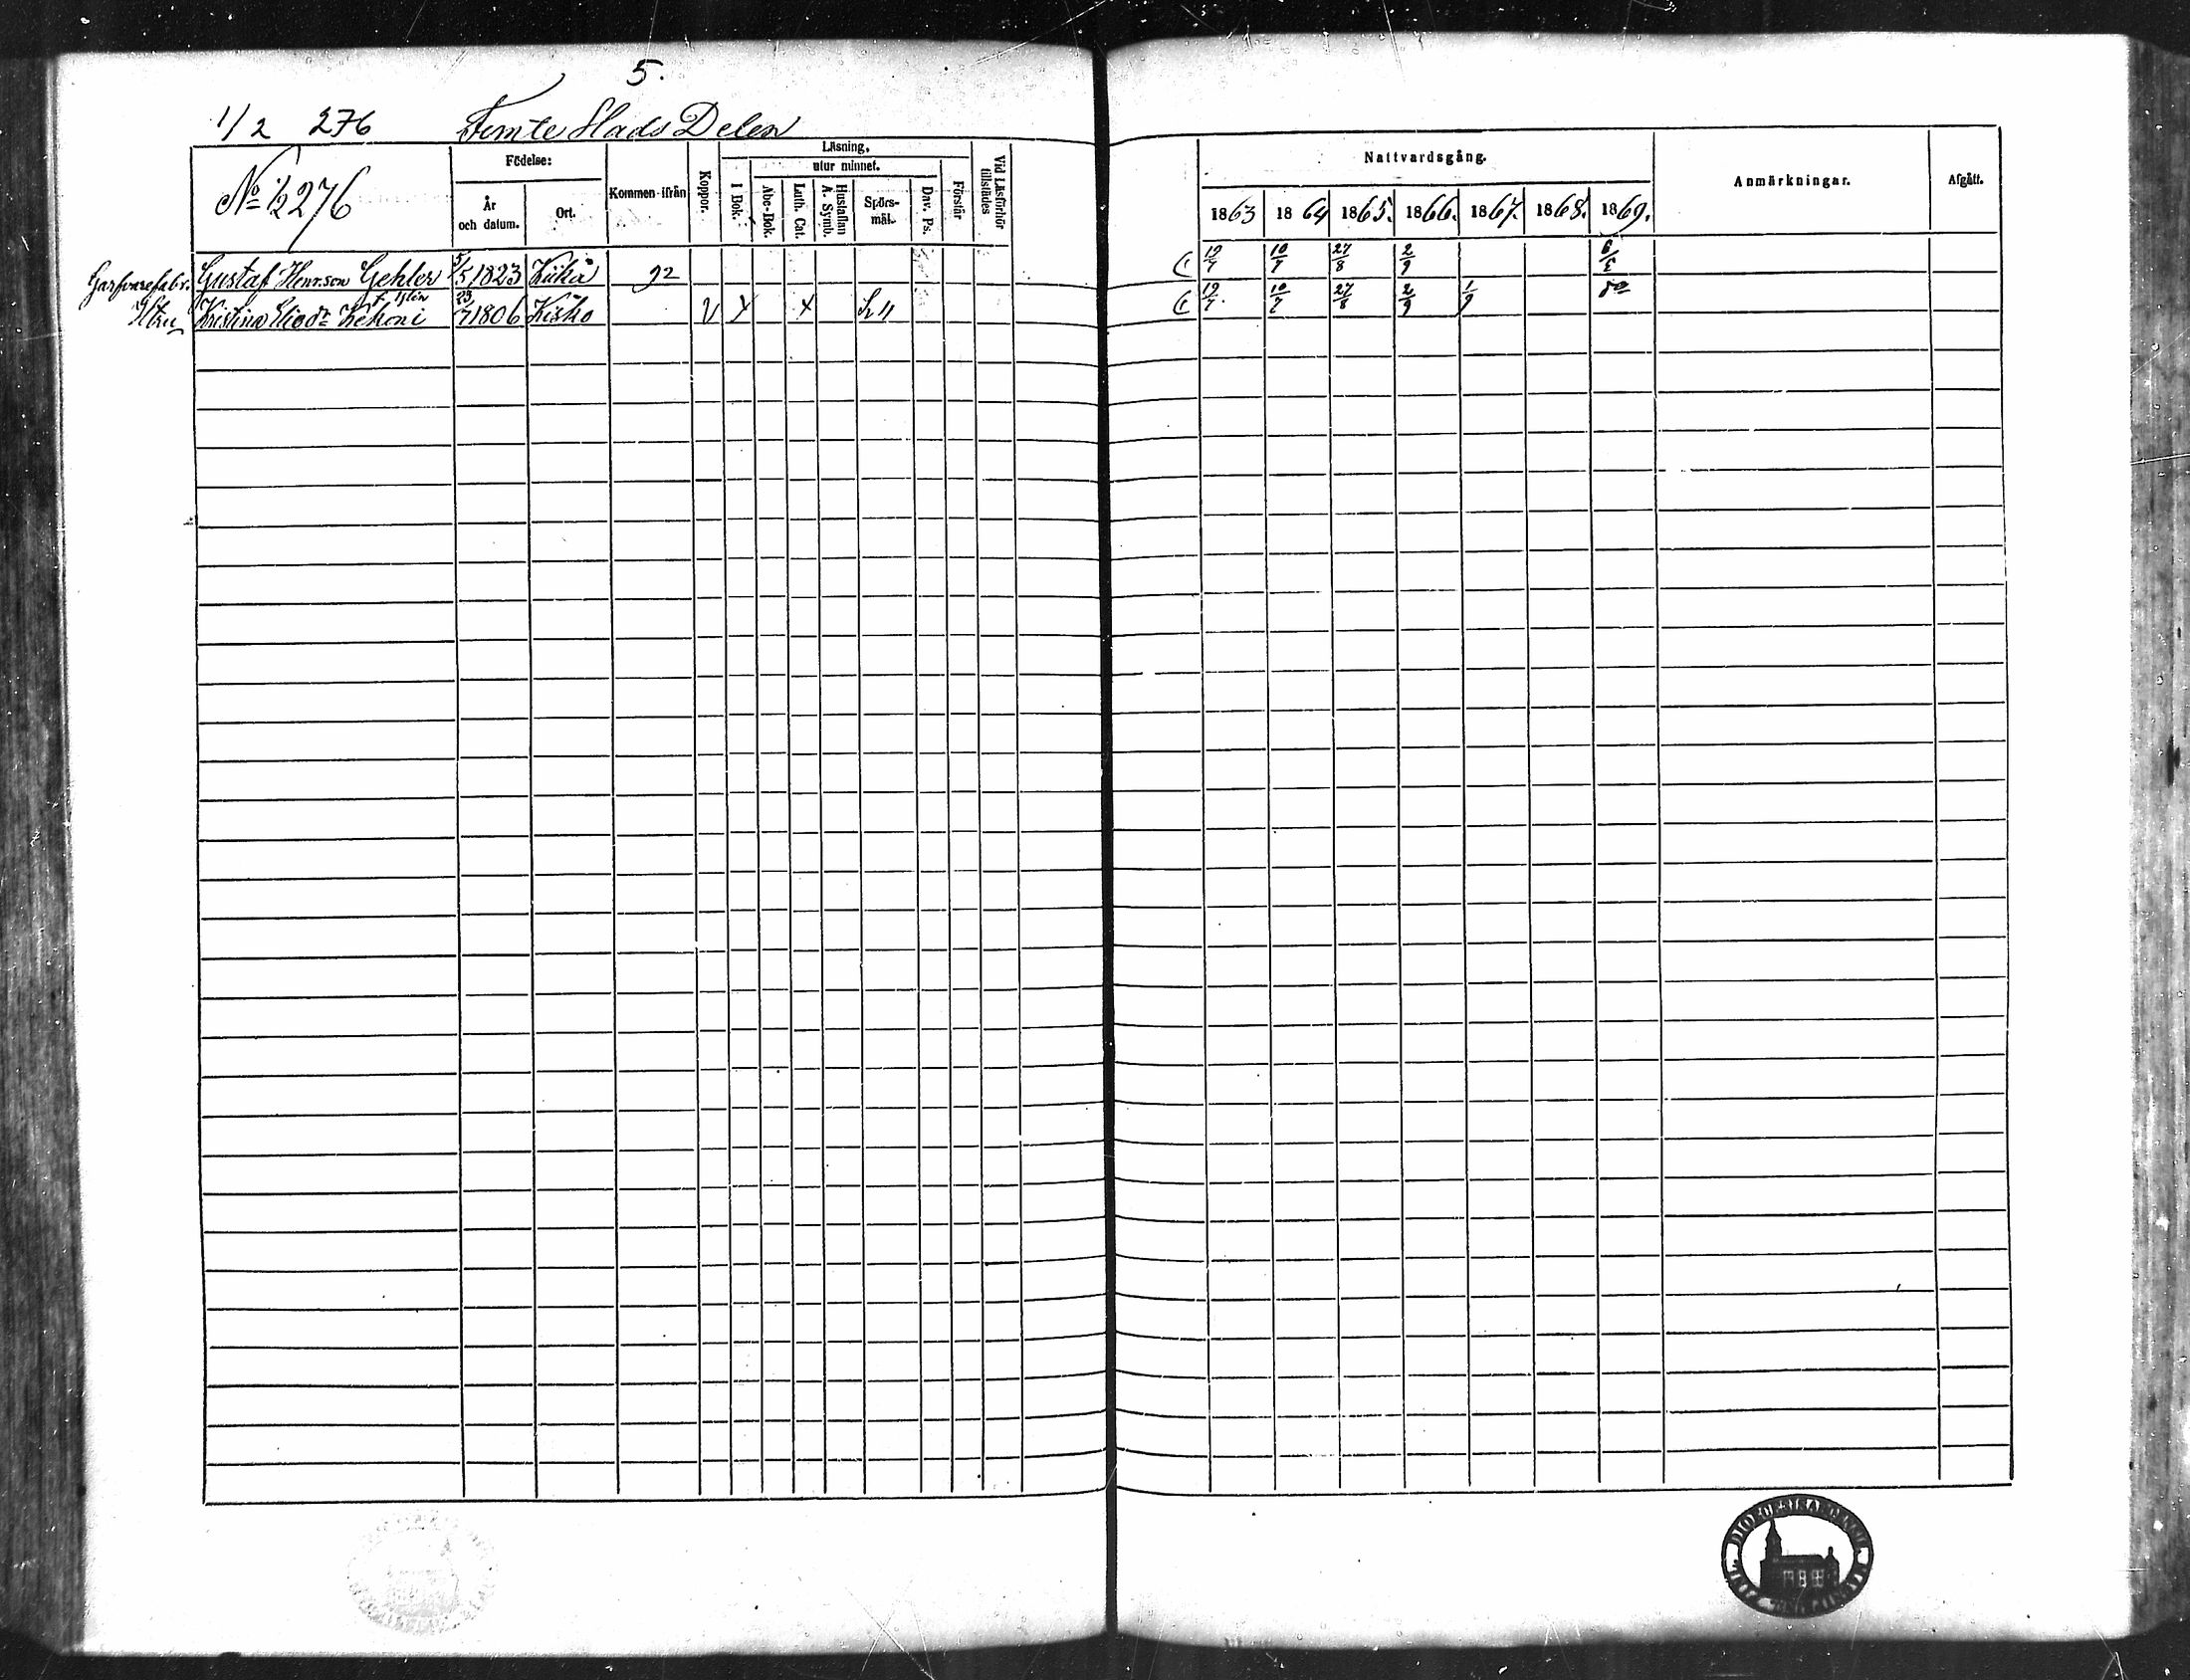 5.
1/2 276 Femte Stads Delen
No 1/2 276
Födelse:
År och datum.
Ort.
Kommen ifrån
Koppor.
Läsning.
utur minnet.
I Bok.
Abc-Bok.
Luth. Cat.
Hustaflan A. Symb.
Spörsmål.
Dav. Ps.
Förstår
Vid Läsförhör tillstädes
Nattvardsgång.
1863 1864 1865. 1866. 1867. 1868. 1869.
Anmärkningar.
Afgått.
Garfvarefabr. Gustaf Henr.son Gehler 5/5 1823 Kiika 92 19/7 10/7 27/8 2/9
Hstru Kristina Eliedr Kekoni 23/7 1806 Kisko V X X 19/7 10/7 27/8 2/9 1/9 do